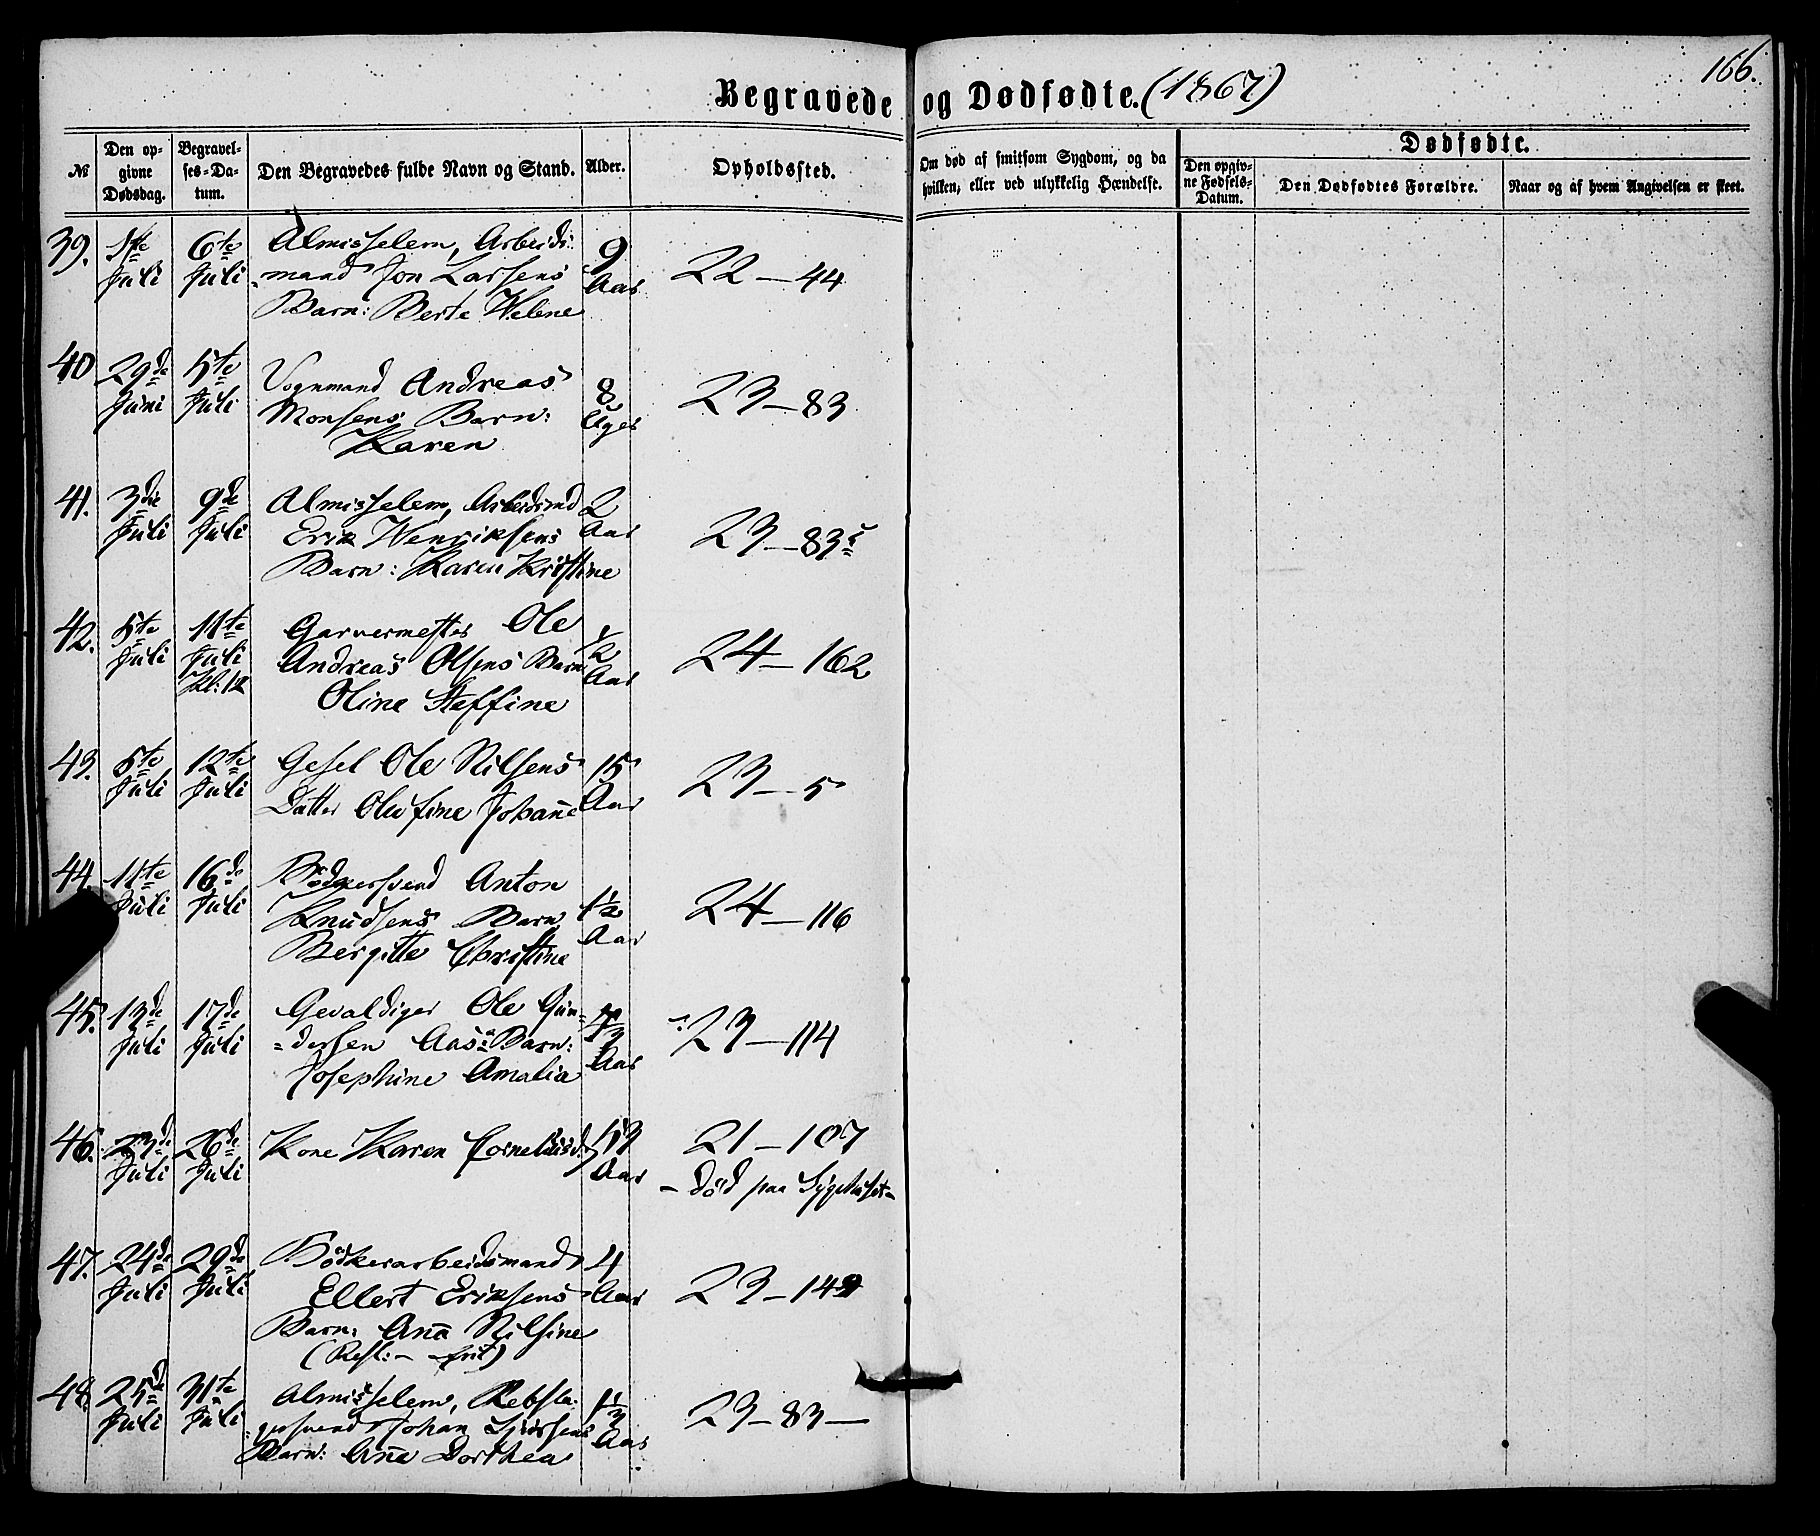 166.
Begravede og Dødfødte. (1867)
№
Den opgivne Dødsdag.
Begravelses-Datum.
Den Begravedes fulde Navn og Stand.
Alder.
Opholdssted.
Om død af smitsom Sygdom, og da hvilken, eller ved ulykkelig Hændelse.
Dødfødte.
Den opgivne Fødsels-Datum.
Den Dødfødtes Forældre.
Naar og af hvem Angivelsen er skeet.
39. 1ste Juli 6te Juli Almisselem, Arbeids-
mand Jon Larsens 9 Aar 22 – 44
Barn: Berte Helene
40 29de Juni 5te Juli Vognmand Andreas
Monsens Barn: 8 Uger 23 – 83
Karen
41. 3die Juli 9de Juli Almisselem, Arbeidsmd
Erik Henriksens 2 Aar 23 – 83
Barn: Karen Kristine
42. 5te Juli 11te Juli Kl: 12 Garvermester Ole
Andreas Olsens Barn 1/2 Aar 24 – 162
Oline Steffine
43. 5te Juli 12te Juli Gesel Ole Nilsens 15 Aar 23 – 5
Datter Olufine Johanne
44. 11te Juli 16de Juli Bødkersvend Anton
Knudsens Barn 1 1/2 Aar 24 – 116
Bergitte Christine
45. 13de Juli 17de Juli Gevaldiger Ole Gun-
=dersen Aas's Barn: Aar 23 – 114
Josephine Amalia
46. 23de Juli 26de Juli Kone Karen Corneliusd: 53 Aar 21 – 107
– død paa Sygehuset –
47. 24de Juli 29de Juli Bødkerarbeidsmand 4 Aar
Ellert Eriksens 23 –
Barn: Ana Nilsine
(Resl: – frit)
48. 25de Juli 31te Juli Almisselem, Rebsla-
gersvend Johan Barn: Ane Dorthea 1 1/3 Aar 23 – 83 –